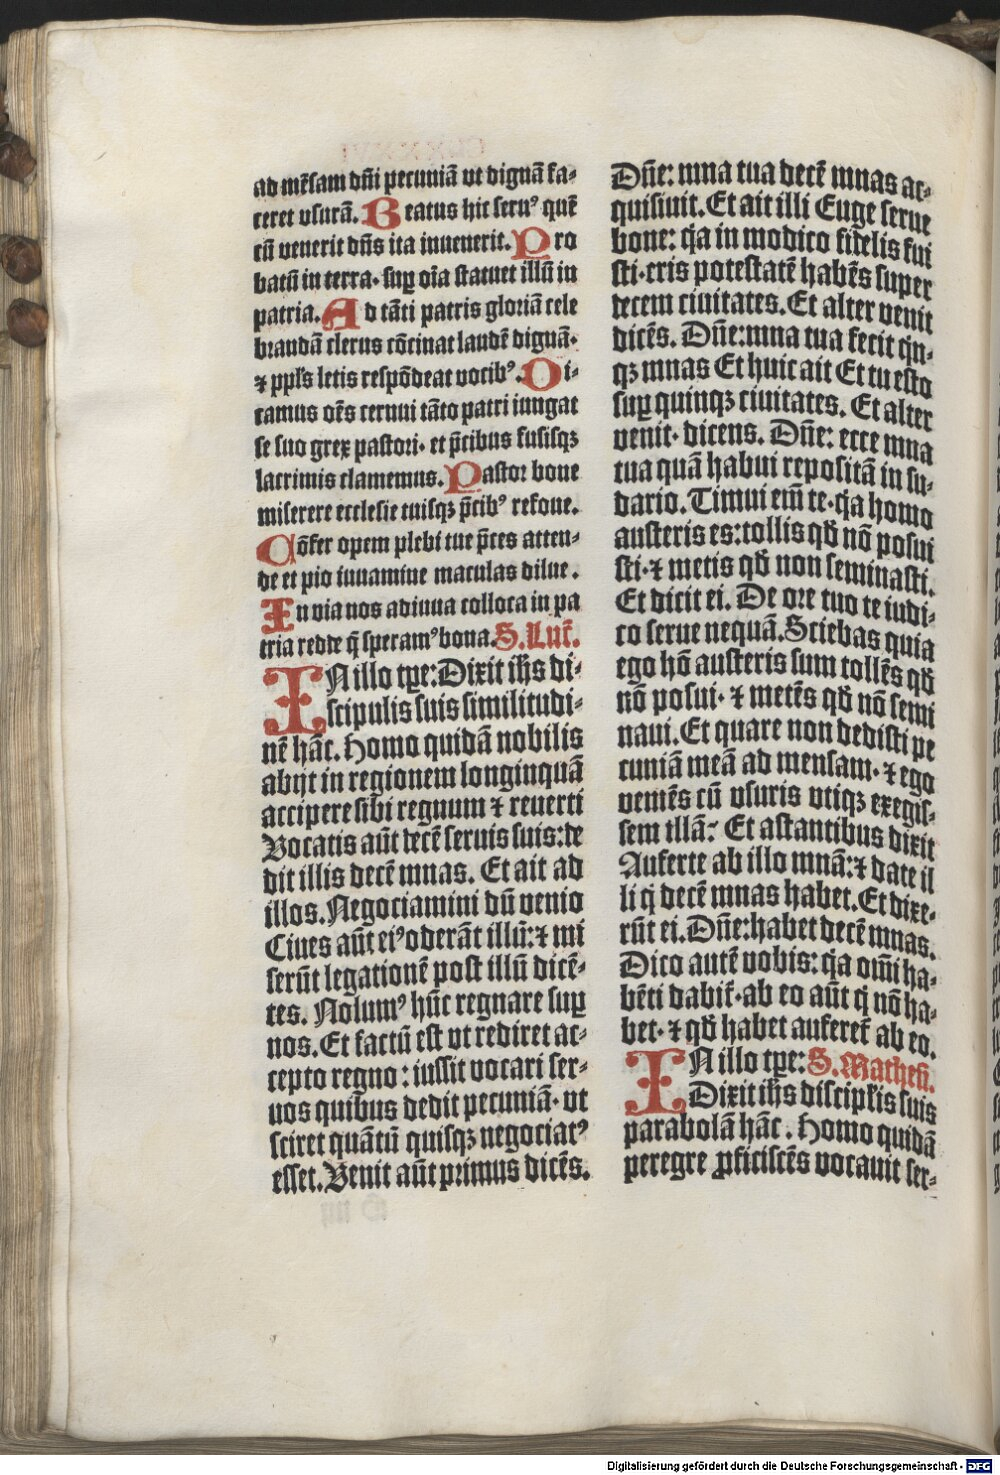 ad mēsam dñi pecuniā ut dignā fa⸗
ceret vsurā. Beatus hic seruꝰ quē
cū venerit dñs ita inuenerit. Pro
batū in terra· suꝑ oīa statuet illū in
patria. Ad tāti patris gloriā cele
brandā clerus cōcinat laudē dignā·
⁊ ppl̄s letis respōdeat vocibꝰ. Di⸗
camus oēs cernui tāto patri iungat
se suo grex pastori· et p̄cibus fusisqꝫ
lacrimis clamemus. Pastor bone
miserere ecclesie tuisqꝫ p̄cibꝰ refoue.
Cōfer opem plebi tue p̄ces atten⸗
de et pio iuuamine maculas dilue.
In via nos adiuua colloca in pa
tria redde q̄ speramꝰ bona. S. Luc̄.
IN illo tꝑe: Dixit ih̄s di⸗
scipulis suis similitudi⸗
nē hāc. Homo quidā nobilis
abijt in regionem longinquā
accipere sibi regnum ⁊ reuerti
Vocatis aūt decē seruis suis: de
dit illis decē mnas. Et ait ad
illos. Negociamini dū venio
Ciues aūt eiꝰ oderāt illū: ⁊ mi
serūt legationē post illū dicē⸗
tes. Nōlumꝰ hūc regnare suꝑ
nos. Et factū est vt rediret ac⸗
cepto regno: iussit vocari ser⸗
uos quibus dedit pecuniā· vt
sciret quātū quisqꝫ negociatꝰ
esset. Venit aūt primus dicēs.
Dn̄e: mna tua decē mnas ac⸗
quisiuit. Et ait illi Euge serue
bone: q̄a in modico fidelis fui
sti· eris potestatē habēs super
decem ciuitates. Et alter venit
dicēs. Dn̄e: mna tua fecit q̄n⸗
qꝫ mnas Et huic ait Et tu esto
suꝑ quinqꝫ ciuitates. Et alter
venit· dicens. Dn̄e: ecce mna
tua quā habui repositā in su⸗
dario. Timui em̄ te· q̄a homo
austeris es: tollis qd̄ nō posui
sti· ⁊ metis qd̄ non seminasti.
Et dicit ei. De ore tuo te iudi⸗
co serue nequā. Sciebas quia
ego hō austeris sum tollēs qd̄
nō posui· ⁊ metēs qd̄ nō semi
naui. Et quare non dedisti pe
cuniā meā ad mensam· ⁊ ego
veniēs cū vsuris vtiqꝫ exegis⸗
sem illā? Et astantibus dixit
Auferte ab illo mnā: ⁊ date il
li q̄ decē mnas habet. Et dixe⸗
rūt ei. Dn̄e: habet decē mnas.
Dico autē vobis: q̄a om̄i ha⸗
bēti dabit̄· ab eo aūt q̄ nō ha⸗
bet· ⁊ qd̄ habet auferet̄ ab eo.
IN illo tꝑe: S. Mathei.
Dixit ih̄s discipl̄is suis
parabolā hāc. Homo quidā
peregre ꝓficiscēs vocauit ser⸗
Digitalisierung gefördert durch die Deutsche Forschungsgemeinschaft - DFG